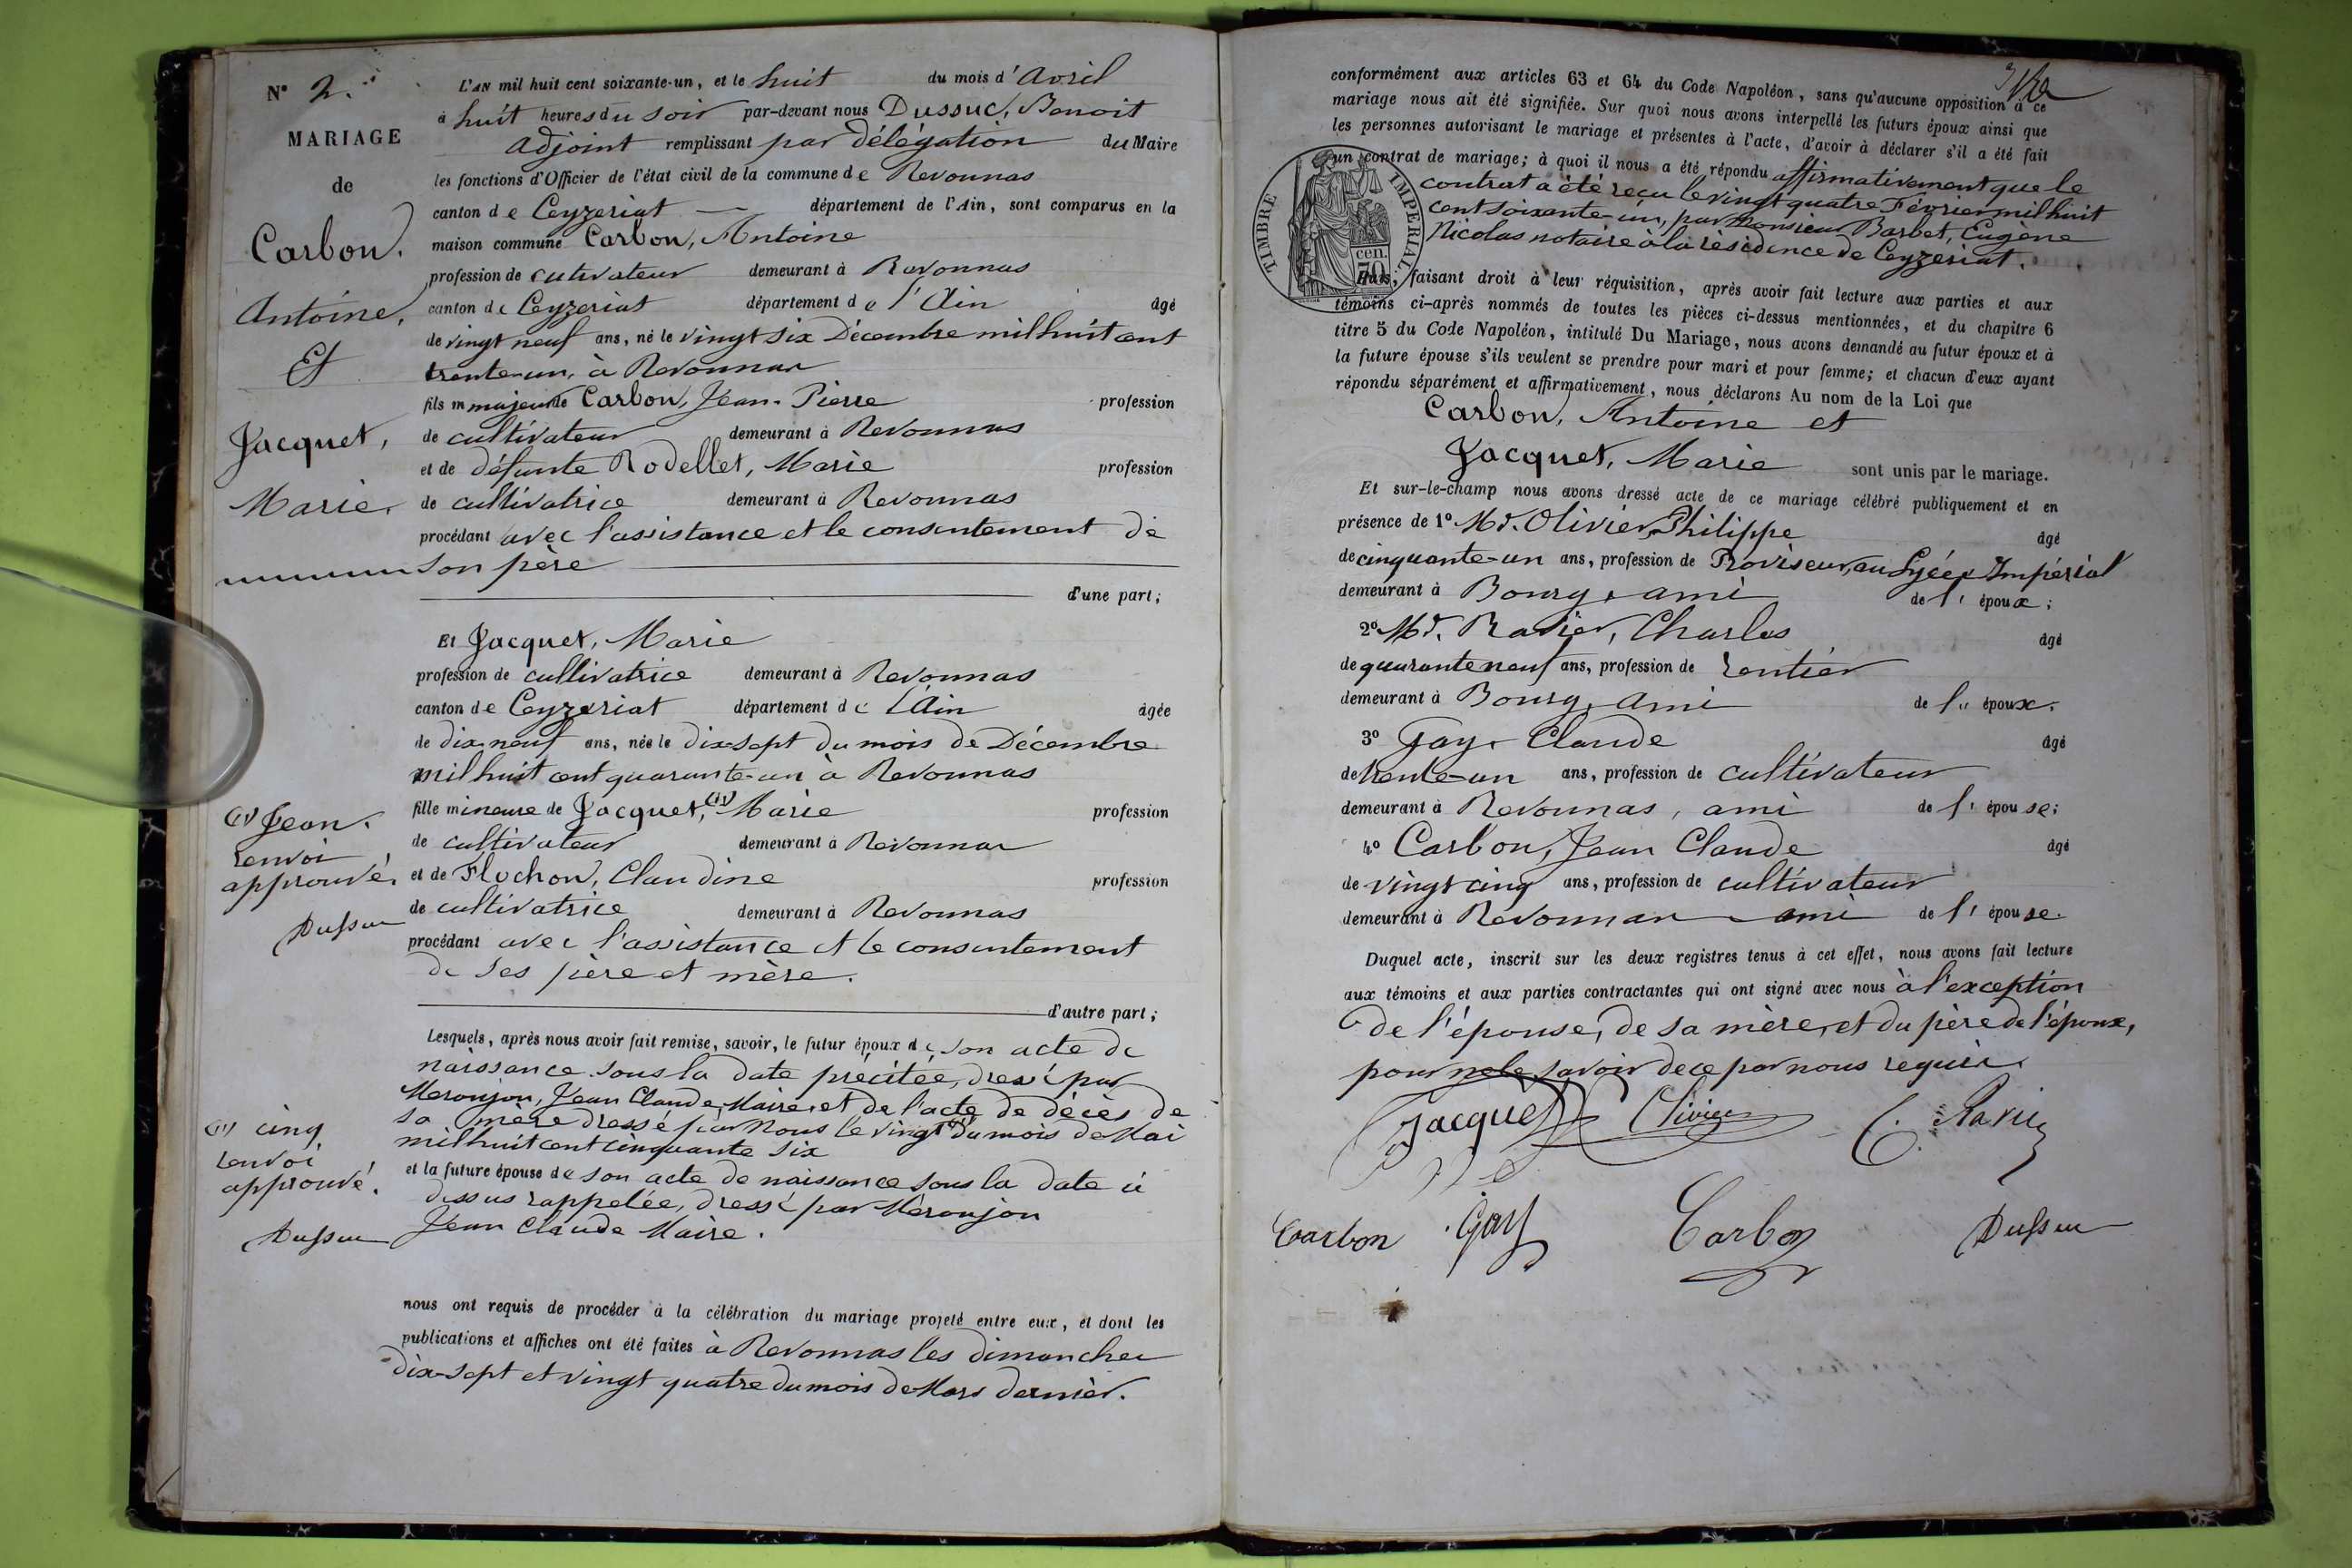 N° 2.
MARIAGE
de
Carbon,
Antoine,
Et
Jacquet,
Marie.
L'AN mil huit cent soixante-un, et le huit du mois d'Avril
à huit heures du soir par-devant nous Dussuc, Benoit
adjoint remplissant par délégation du Maire
les fonctions d'Officier de l'état civil de la commune de Revonnas
canton de Ceyzeriat — département de l'Ain, sont comparus en la
maison commune Carbon, Antoine
profession de cutivateur demeurant à Revonnas
canton de Ceyzeriat département de l'Ain âgé
de vingt neuf ans, né le vingt six Décembre mil huit cent
trente-un, à Revonnas
fils majeur de Carbon, Jean-Pierre profession
de cultivateur demeurant à Revonnas
et de défunte Rodellet, Marie profession
de cultivatrice demeurant à Revonnas
procédant avec l'assistance et le consentement de
son père
d'une part;
Et Jacquet, Marie
profession de cultivatrice demeurant à Revonnas
canton de Ceyzeriat département de l'Ain âgée
de dix-neuf ans, née le dix-sept du mois de Décembre
mil huit cent quarante-un à Revonnas
fille mineure de Jacquet, (1) Marie profession
de cultivateur demeurant à Revonnas
et de Flochon, Claudine profession
de cultivatrice demeurant à Revonnas
procédant avec l'assistance et le consentement
de ses père et mère.
d'autre part;
(1) Jean.
renvoi
approuvé.
Dussuc
Lesquels, après nous avoir fait remise, savoir, le futur époux de son acte de
naissance sous la date précitée, dressé par
Meronjon, Jean Claude, Maire, et de l'acte de décès de
sa mère dressé par nous le vingt (1) du mois de Mai
mil huit cent cinquante six
et la future épouse de son acte de naissance sous la date ci
dessus rappelée, dressé par Meronjon
Jean Claude Maire.
(1) cinq,
renvoi
approuvé.
Dussuc
nous ont requis de procéder à la célébration du mariage projeté entre eux, et dont les
publications et affiches ont été faites à Revonnas les dimanches
dix-sept et vingt quatre du mois de Mars dernier.
conformément aux articles 63 et 64 du Code Napoléon, sans qu'aucune opposition à ce
mariage nous ait été signifiée. Sur quoi nous avons interpellé les futurs époux ainsi que
les personnes autorisant le mariage et présentes à l'acte, d'avoir à déclarer s'il a été fait
un contrat de mariage; à quoi il nous a été répondu affirmativement que le
contrat a été reçu le vingt quatre Février mil huit
cent soixante-un, par Monsieur Barbet, Eugène
Nicolas notaire à la résidence de Ceyzeriat.
TIMBRE IMPÉRIAL
cen.
70
Puis, faisant droit à leur réquisition, après avoir fait lecture aux parties et aux
témoins ci-après nommés de toutes les pièces ci-dessus mentionnées, et du chapitre 6
titre 5 du Code Napoléon, intitulé Du Mariage, nous avons demandé au futur époux et à
la future épouse s'ils veulent se prendre pour mari et pour femme; et chacun d'eux ayant
répondu séparément et affirmativement, nous déclarons Au nom de la Loi que
Carbon, Antoine et
Jacquet, Marie sont unis par le mariage.
Et sur-le-champ nous avons dressé acte de ce mariage célébré publiquement et en
présence de 1° Mr. Olivier, Philippe âgé
de cinquante-un ans, profession de Proviseur, au Lycée Impérial
demeurant à Bourg, ami de l'époux;
2° Mr. Ravier, Charles âgé
de quarante neuf ans, profession de rentier
demeurant à Bourg, ami de l'époux.
3° Gay, Claude âgé
de trente-un ans, profession de cultivateur
demeurant à Revonnas, ami de l'épouse;
4° Carbon, Jean Claude âgé
de vingt cinq ans, profession de cultivateur
demeurant à Revonnas ami de l'épouse.
Duquel acte, inscrit sur les deux registres tenus à cet effet, nous avons fait lecture
aux témoins et aux parties contractantes qui ont signé avec nous à l'exception
de l'épouse, de sa mère, et du père de l'époux,
pour ne le savoir de ce par nous requis.
Jacquet Olivier C. Ravier
Carbon Gay Carbon Dussuc